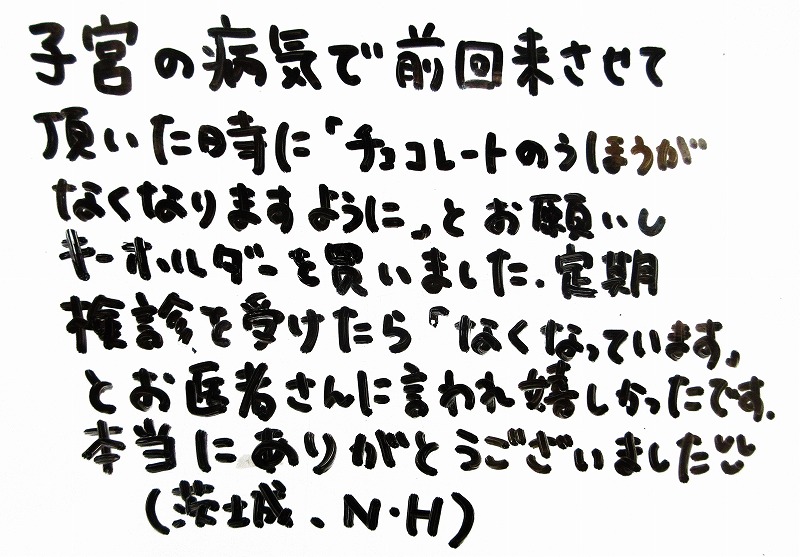 子宮の病気で前回来させて
頂いた時に「チョコレートのうほうが
なくなりますように」とお願いし
キーホルダーを買いました.定期
検診を受けたら「なくなっています」
とお医者さんに言われ嬉しかったです.
本当にありがとうございました!!
(茨城.N・H)